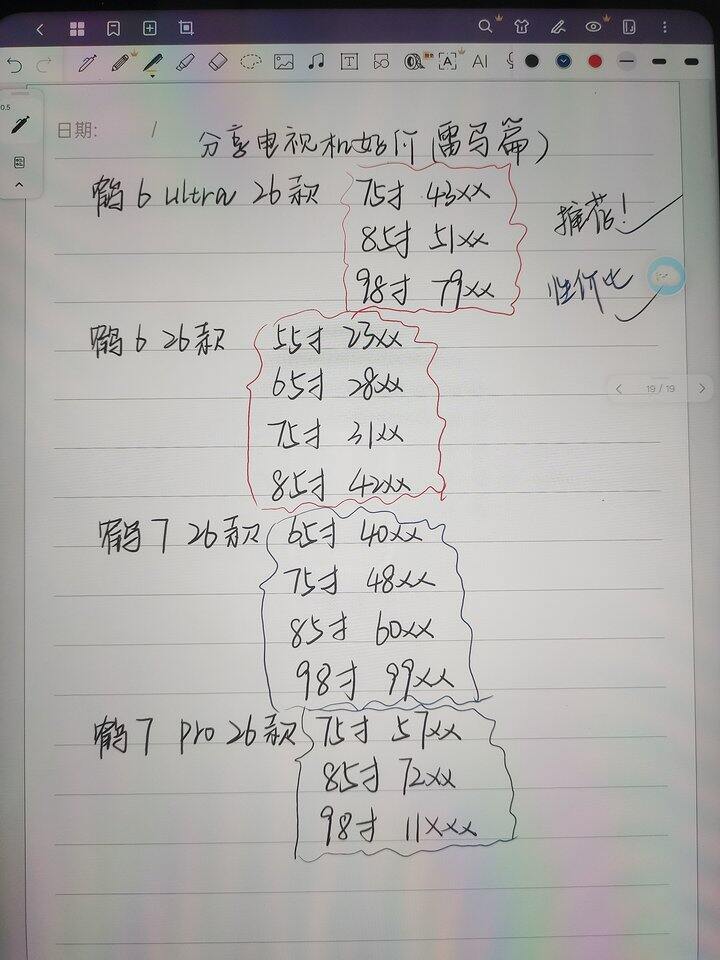 0.5
日期: /
分享电视机好价(雷鸟篇)
鹤6 ultra 26款 75寸 43xx
85寸 51xx
98寸 79xx
推荐!
性价比
鹤6 26款 55寸 23xx
65寸 28xx
75寸 31xx
85寸 42xx
19/19
鹤7 26款 65寸 40xx
75寸 48xx
85寸 60xx
98寸 99xx
鹤7 pro 26款 75寸 57xx
85寸 72xx
98寸 11xxx